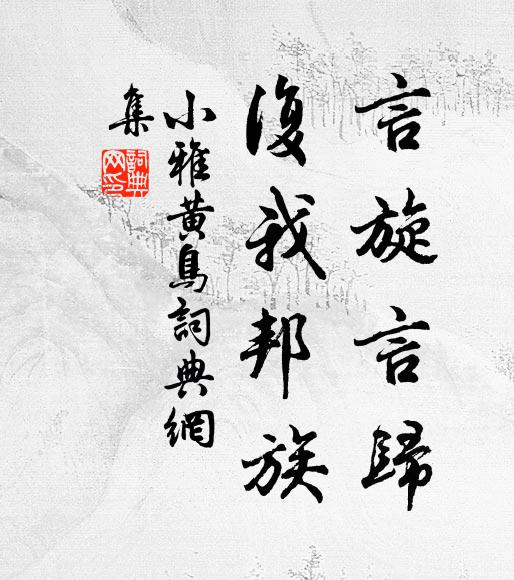 言旋言歸
復我邦族
小雅黃鳥詞典網
集
詞典網印